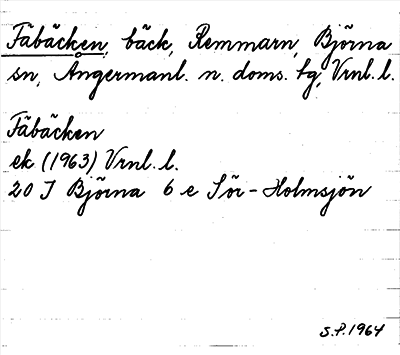 Fäbäcken, bäck, Remmarn, Björna
sn, Ångermanl. n. doms. tg, Vrnl. l.
Fäbäcken
ek (1963) Vrnl. l.
20 J Björna 6 e Sör-Holmsjön
S.P. 1964